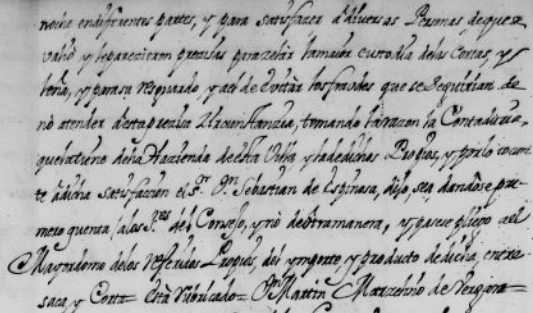 noche endiferentes partes, y para satisfazer à diuersas Personas dequese
valió y leparecieron precisas parazelàr lamaior custodia delas Cortas, y
leña, y parasu resguardo y así de evitàr losfraudes que se seguirían de
nò atender àestaprecisa Zircunstanzia, tomando larazon la Contaduria,
quelatiene dedha Hazienda deesta Villa y ladedichos Propios, y porlo tocan
te àdicha satisfaccion el s.r D.n Sebastian de Espinosa, dijo, sea dandose pri
mero quenta (alos S.res del Consejo, y nò deotramanera, y pasese pliego a el
Mayordomo delos referidos Propios, del ymporte y producto dedicha entre
saca, y Corta= Està rubricado= D.n Martin Marzelino de Vergara=